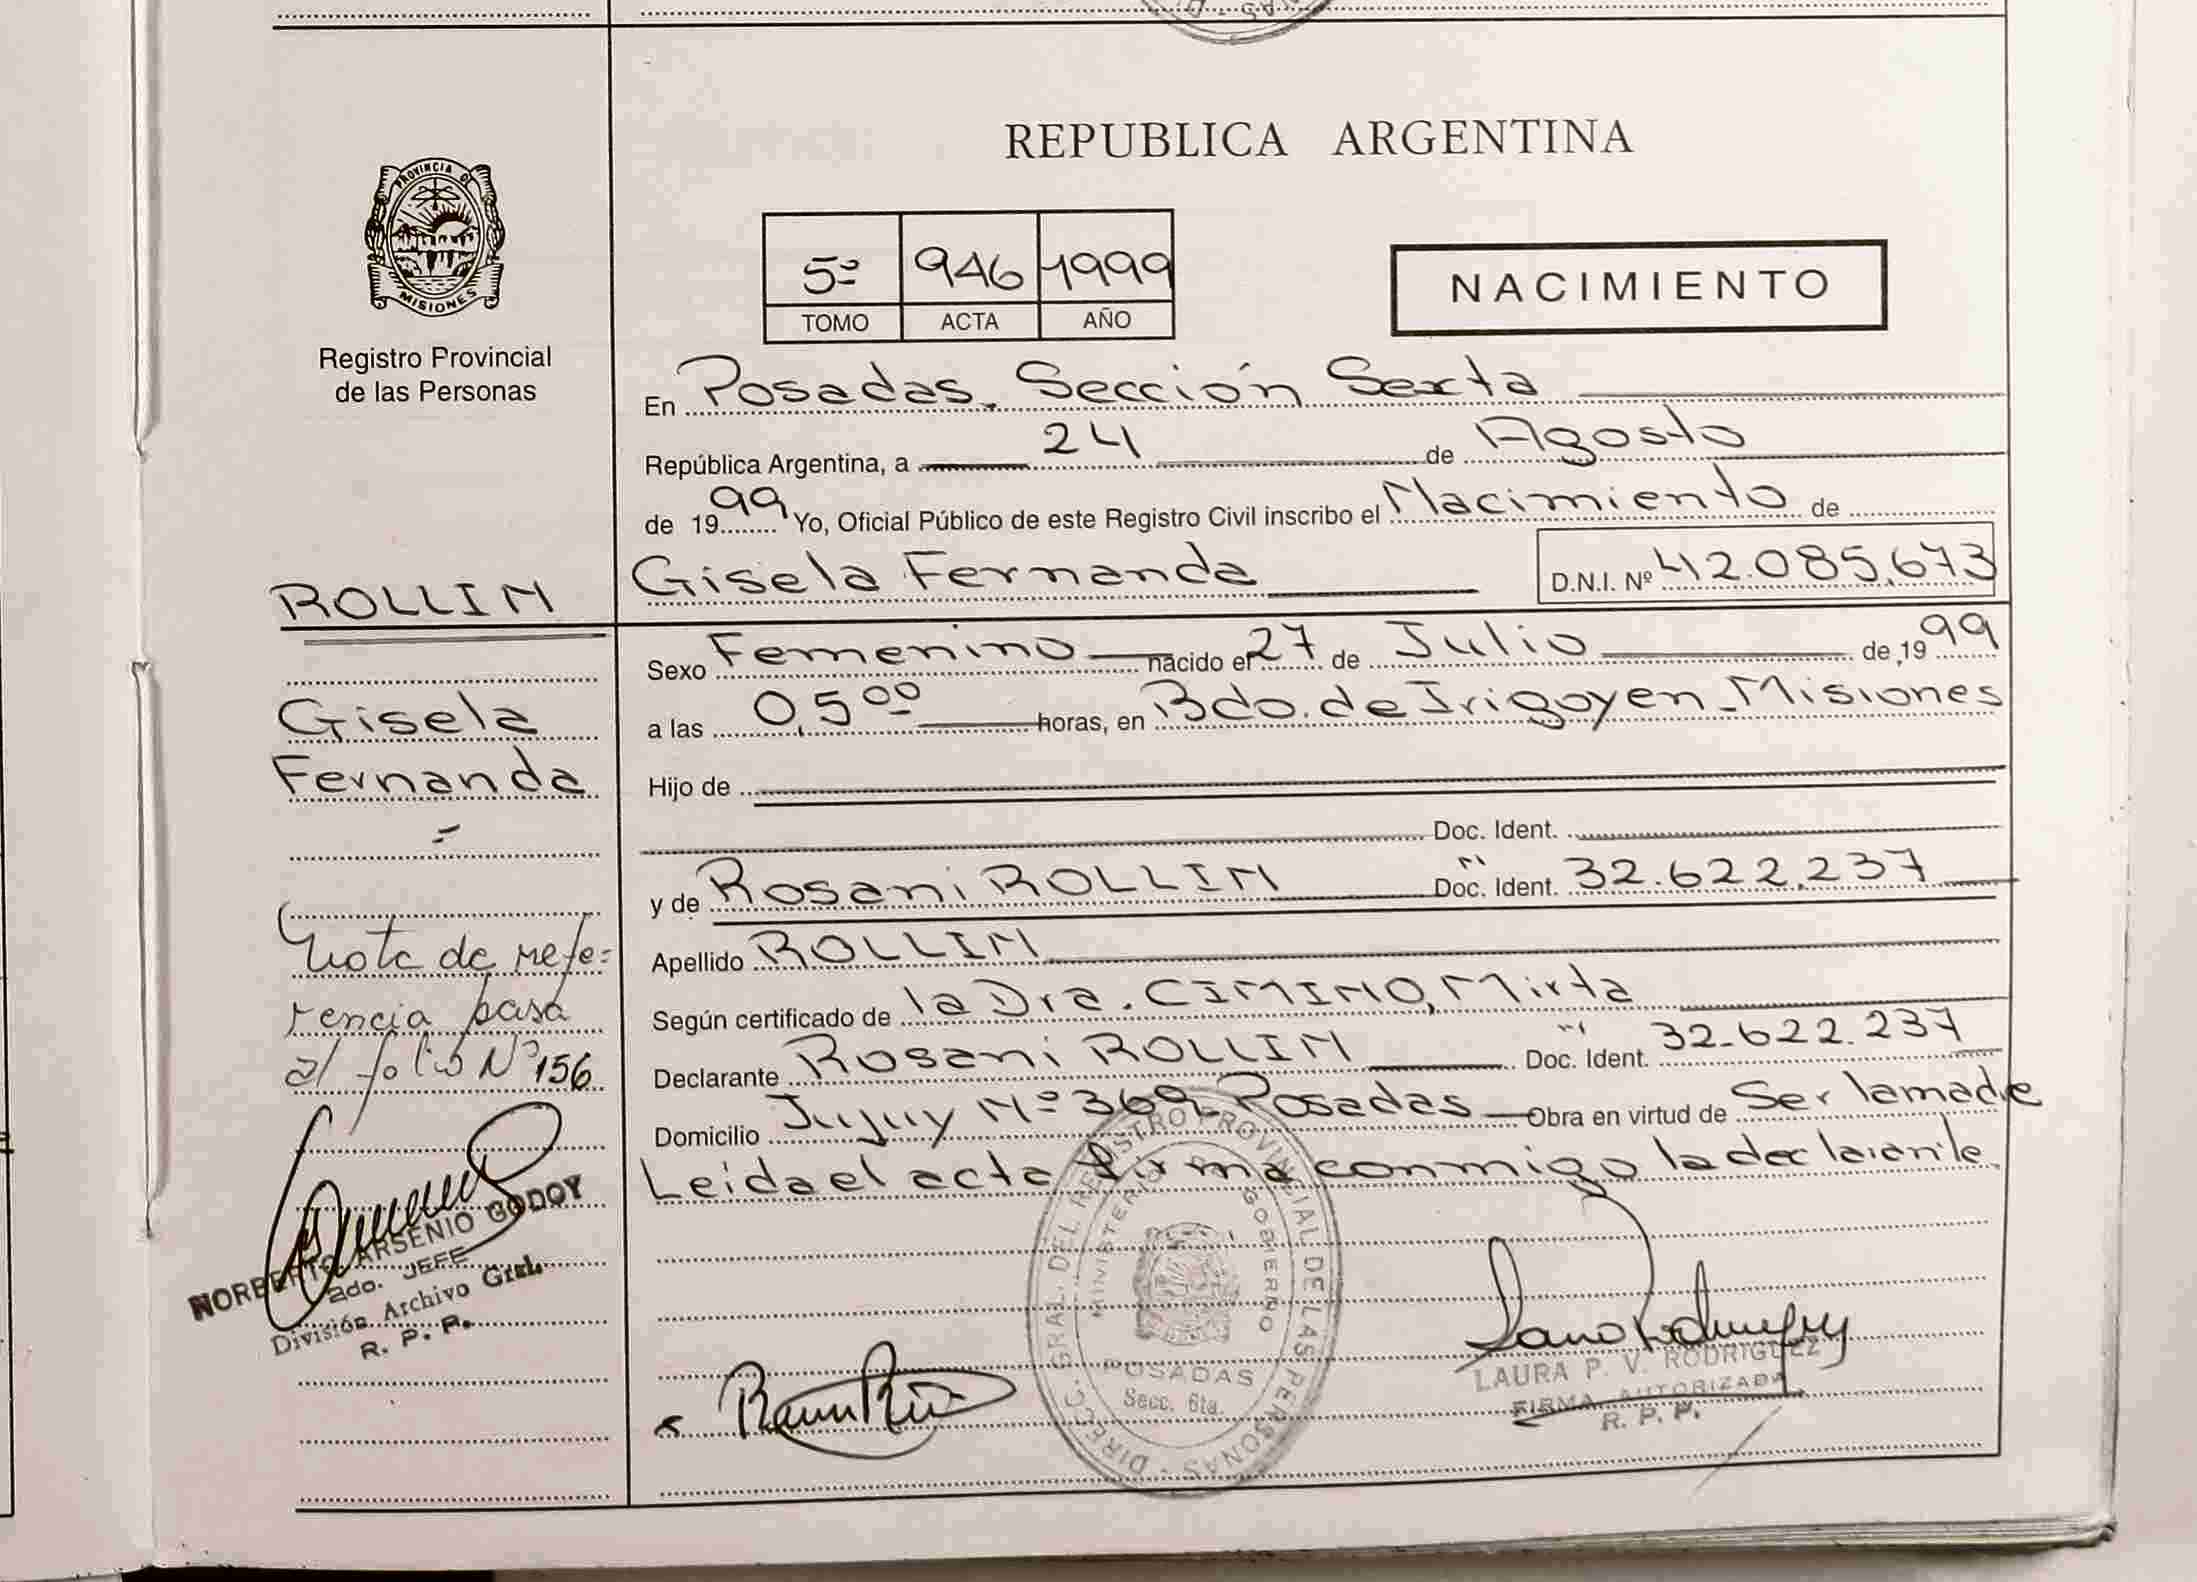 REPUBLICA ARGENTINA
PROVINCIA DE
MISIONES
Registro Provincial
de las Personas
5º 946 1999
TOMO ACTA AÑO
NACIMIENTO
En Posadas. Sección Sexta
República Argentina, a 24 de Agosto
de 1999 Yo, Oficial Público de este Registro Civil inscribo el Nacimiento de
ROLLIN
Gisela Fernanda D.N.I. Nº 42.085.673
Sexo Femenino nacido el 27 de Julio de 1999
Gisela
a las 0,5⁰⁰ horas, en Bdo. de Irigoyen - Misiones
Fernanda
Hijo de
Doc. Ident.
y de Rosani ROLLIN Doc. Ident. 32.622.237
Nota de refe=
rencia pasa
al folio Nº 156
Apellido ROLLIN
Según certificado de la Dra. CIMINO, Mirta
Declarante Rosani ROLLIN Doc. Ident. 32.622.237
Domicilio Jujuy Nº 369 - Posadas Obra en virtud de Ser la madre
Leída el acta firma conmigo la declarante.
NORBERTO ARSENIO GODOY
2do. JEFE
División Archivo Gral.
R. P. P.
DIRECC. GRAL. DEL REGISTRO PROVINCIAL DE LAS PERSONAS
MINISTERIO GOBIERNO
POSADAS
Secc. 6ta.
LAURA P. V. RODRIGUEZ
FIRMA AUTORIZADA
R. P. P.